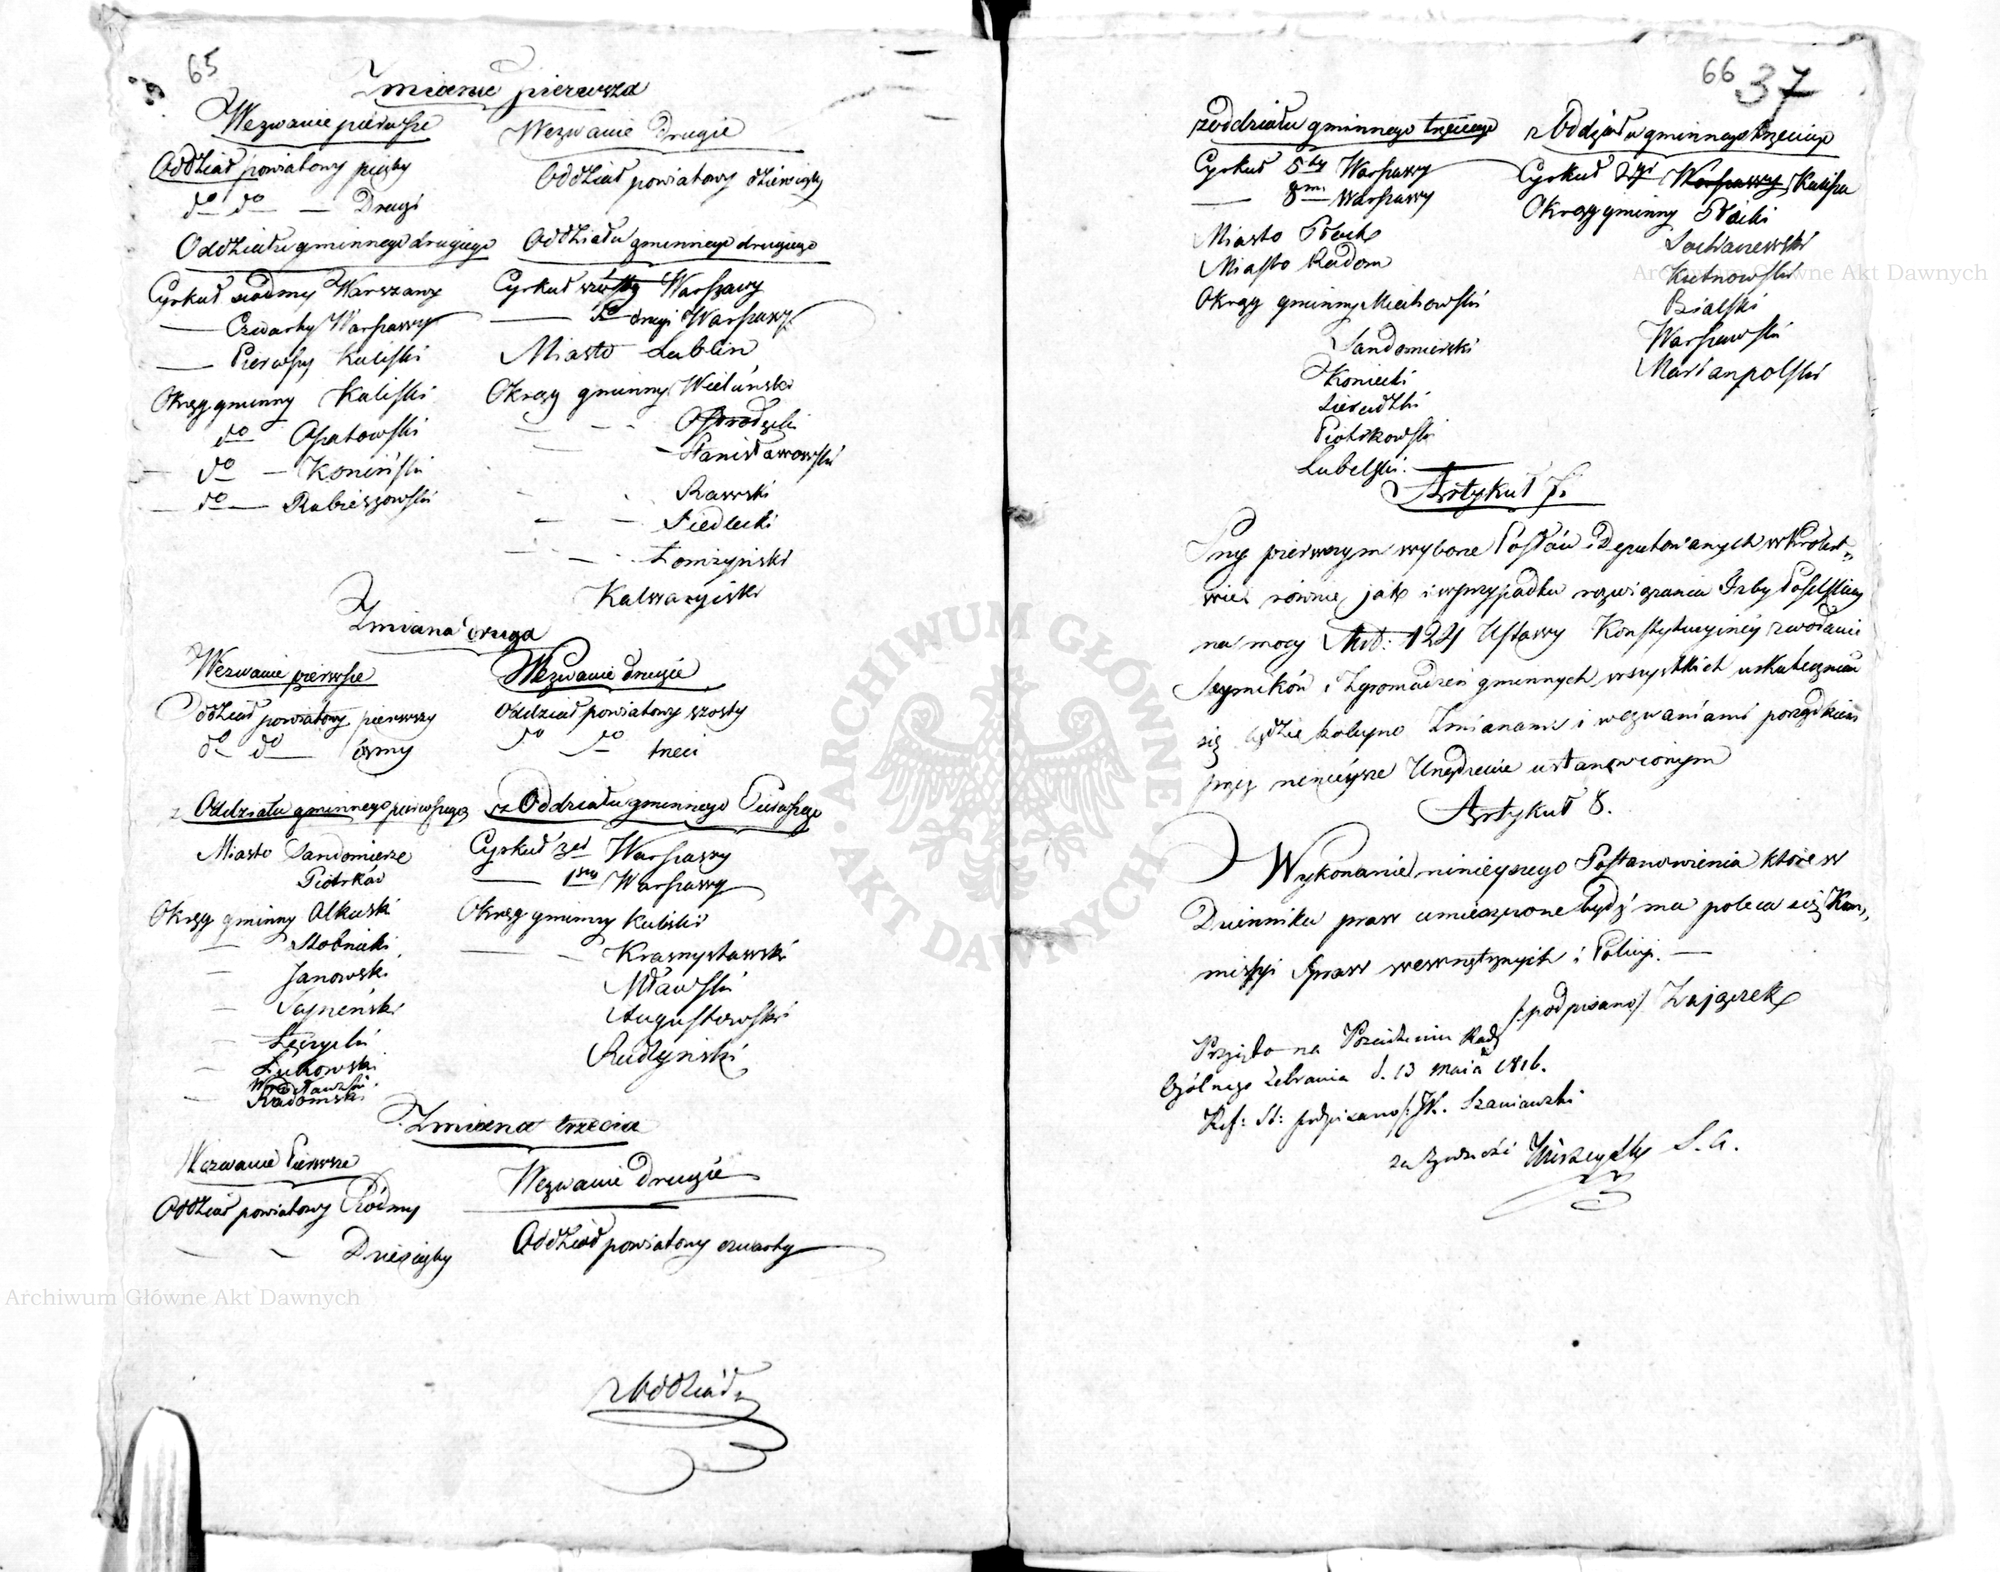 65
Zmiana pierwsza
Wezwanie pierwsze
Oddział powiatowy piąty
do do — Drugi
Oddziału gminnego drugiego
Cyrkuł siódmy Warszawy
— Czwarty Warszawy
— Pierwszy Kaliski
Okręg gminny Kaliski
do Opatowski
— do — Koniński
— do — Rubieszowski
Wezwanie Drugie
Oddział powiatowy dziewiąty
Oddziału gminnego drugiego
Cyrkuł szósty Warszawy
— do drugi Warszawy
Miasto Lublin
Okręg gminny Wieluński
— — Stanisławowski
Rawski
— — Siedlecki
— — Łomżyński
Kalwaryiski
Zmiana druga
Wezwanie pierwsze
Oddział powiatowy pierwszy
do do — ósmy
z Oddziału gminnego pierwszego
Miasto Sandomierz
Piotrków
Okręg gminny Olkuski
— Stobnicki
— Janowski
—
— Łęczycki
— Łukowski
— Radomski
Wezwanie drugie
Oddział powiatowy szosty
do do trzeci
z Oddziału gminnego Pierwszego
Cyrkuł 3ci Warszawy
— 1szy Warszawy
Okręg gminny Kaliski
— — Krasnystawski
Mławski
Augustowski
Radzyński
Zmiana trzecia
Wezwanie Pierwsze
Oddział powiatowy Siódmy
— — Dziesiąty
Wezwanie drugie
Oddział powiatowy czwarty
z Oddziału
66 37
z oddziału gminnego trzeciego
Cyrkuł 5ty Warszawy
— 8my Warszawy
Miasto Płock
Miasto Radom
Okręg gminny Miechowski
Sandomirski
Koniecki
Sieradzki
Piotrkowski
Lubelski.
z Oddziału gminnego trzeciego
Cyrkuł 2gi Warszawy Kalisza
Okręg gminny Płocki
Sochaczewski
Kutnowski
Bialski
Warszawski
Mariampolski
Artykuł 7.
Przy pierwszym wyborze Posłów i Deputowanych w Królest-
wie równie jak i w przypadku rozwiązania Izby Poselskiey
na mocy Art: 121 Ustawy Konstytucyiney zwołanie
Seymików i Zgromadzeń gminnych wszystkich uskuteczniać
się będzie koleyno Zmianami i wezwaniami porządkiem
przez ninieysze Urządzenie ustanowionym
Artykuł 8.
Wykonanie ninieyszego Postanowienia które w
Dzienniku praw umieszczone bydź ma poleca się Kom-
missyi Spraw wewnętrznych i Policyi. —
/podpisano/ Zajączek
Przyięto na Posiedzeniu Rady
Ogólnego Zebrania d. 13 maia 1816.
Ref: St: podpisano/: JK. Szaniawski
za zgodność S. A.
ARCHIWUM GŁÓWNE AKT DAWNYCH
Archiwum Główne Akt Dawnych
Archiwum Główne Akt Dawnych